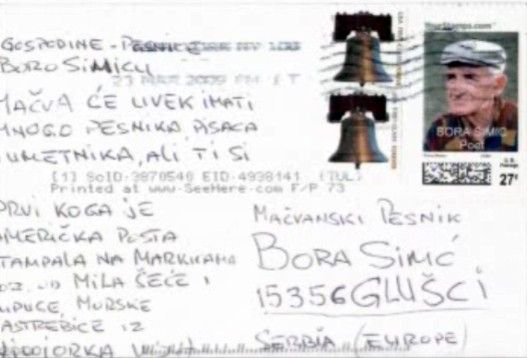 GOSPODINE - PESNIČE
BORO SIMIĆU
MAČVA ĆE UVEK IMATI
MNOGO PESNIKA, PISACA
I UMETNIKA, ALI TI SI
[1] SoID-3870540 EID-4938141 (TUL)
Printed at www.SeeHere.com F/P 73
PRVI KOGA JE
AMERIČKA POŠTA
ŠTAMPALA NA MARKICAMA
POZ. OD MILA ČEČE I
MURSKE
JASTREBICE IZ
23 MAR 2009 PM
YourStamps.com
BORA SIMIC
Poet
27¢
MAČVANSKI PESNIK
BORA SIMIĆ
15356 GLUŠCI
SERBIA (EUROPE)